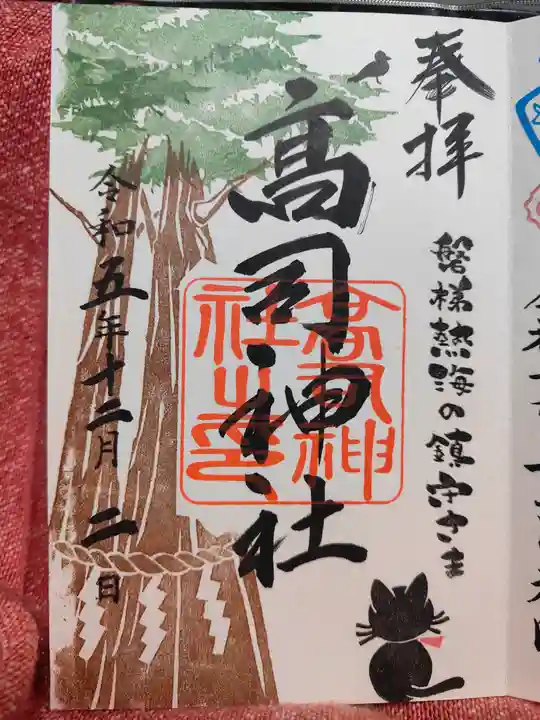 奉拝
磐梯熱海の鎮守さま
髙司神社
高司神社之印
令和五年十二月二日